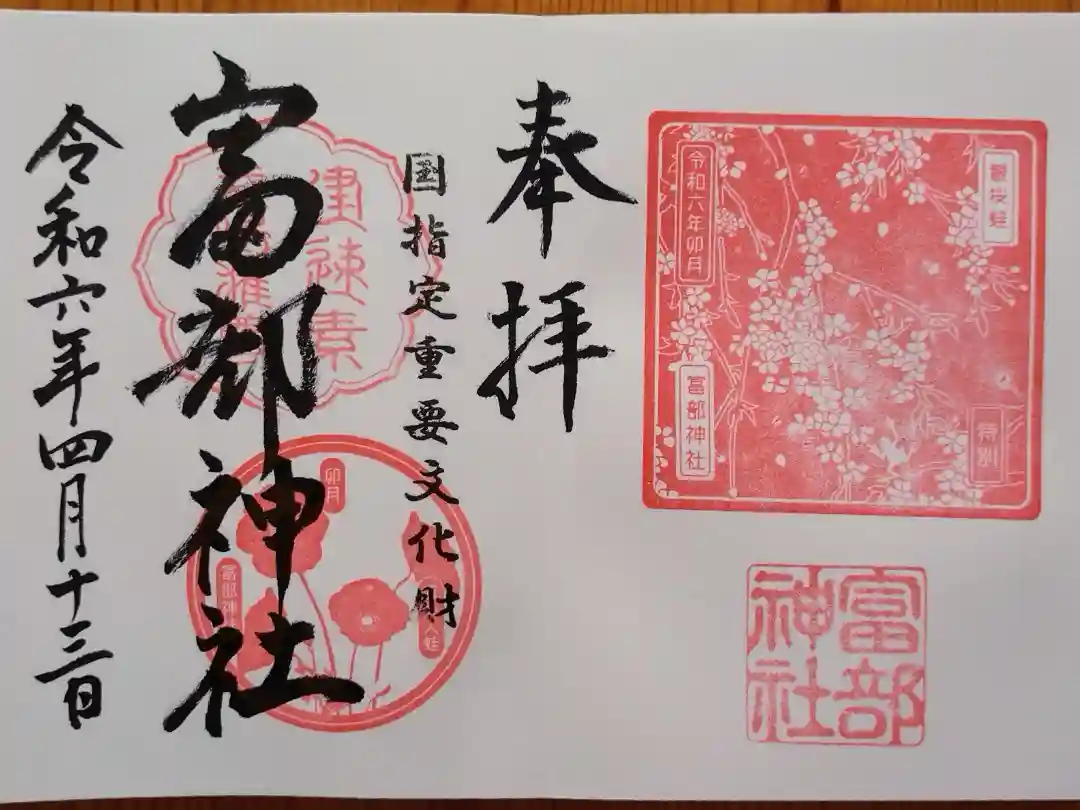 令和六年卯月
富部神社
富部
神社
奉拝
国指定重要文化財
建速素
富部神社
卯月
令和六年四月十三日